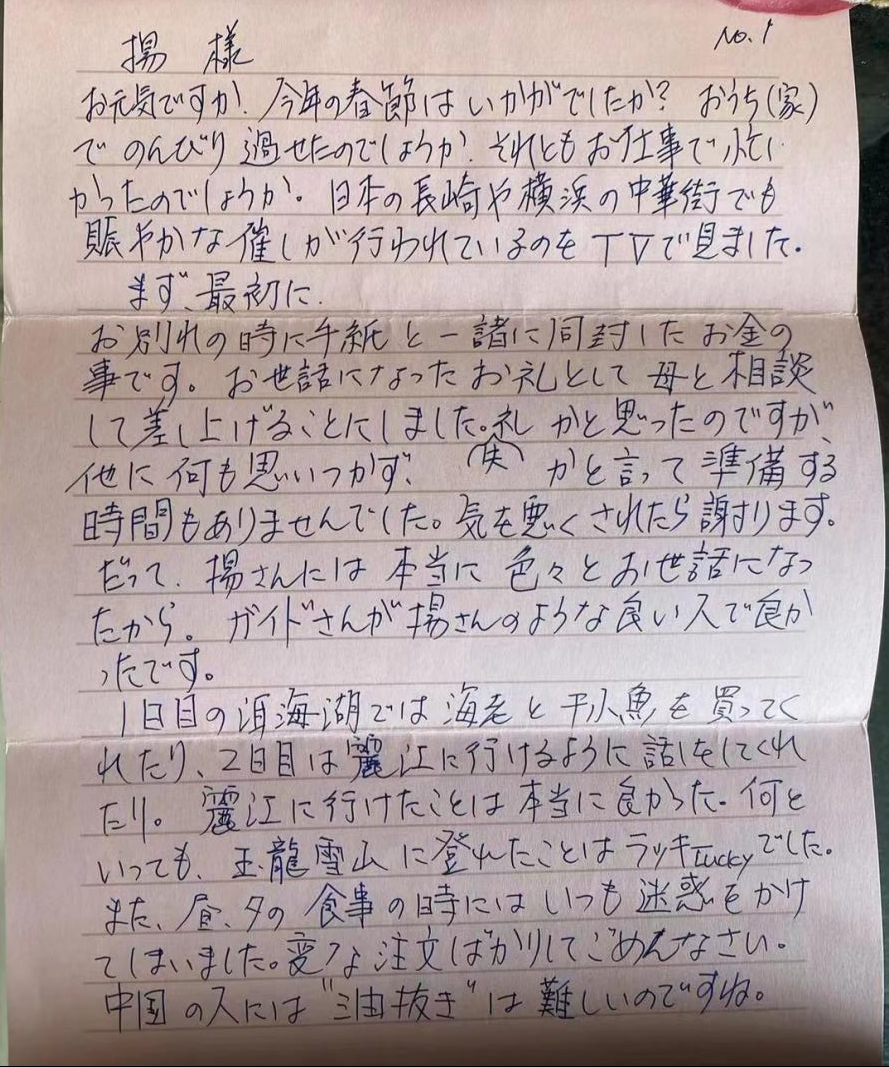 No.1
楊 様
お元気ですか。今年の春節はいかがでしたか? おうち(家)
でのんびり過せたのでしょうか。それともお仕事で忙し
かったのでしょうか。日本の長崎や横浜の中華街でも
賑やかな催しが行われているのをTVで見ました。
まず、最初に、
お別れの時に手紙と一諸に同封したお金の
事です。お世話になったお礼として母と相談
して差し上げることにしました。失礼かと思ったのですが、
他に何も思いつかず、かと言って準備する
時間もありませんでした。気を悪くされたら謝ります。
だって、楊さんには本当に色々とお世話になっ
たから。ガイドさんが楊さんのような良い人で良か
ったです。
1日目の洱海湖では海老と干小魚を買ってく
れたり、2日目は麗江に行けるように話しをしてくれ
たり。麗江に行けたことは本当に良かった。何と
いっても、玉龍雪山に登れたことはラッキーLuckyでした。
また、昼、夕の食事の時にはいつも迷惑をかけ
てしまいました。変な注文ばかりしてごめんなさい。
中国の人には"油抜き"は難しいのですね。